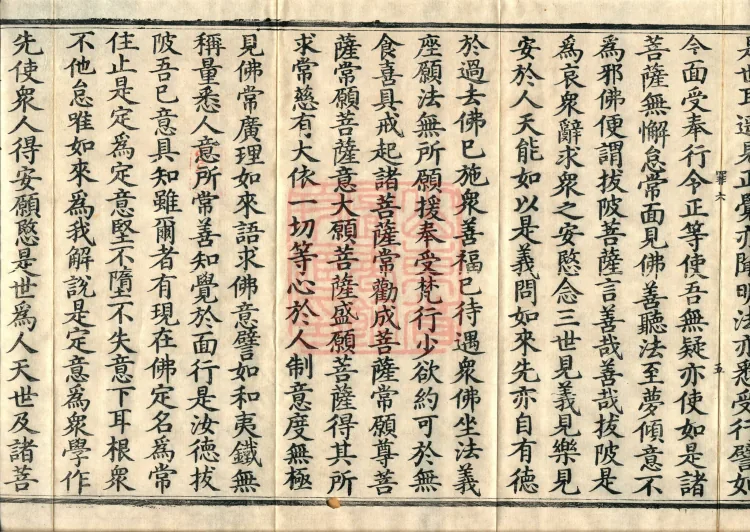 是世耳還見正覺亦降明法亦悉受行譬如
今面受奉行令正等使吾無疑亦使如是諸
菩薩無懈怠常面見佛善聽法至夢傾意不
為邪佛便謂拔陂菩薩言善哉善哉拔陂是
為哀衆辭求衆之安愍念三世見義見樂見
安於人天能如以是義問如來先亦自有德
於過去佛已施衆善福已待遇衆佛坐法義
座願法無所願援奉受梵行少欲約可於無
食喜具戒起諸菩薩常勸成菩薩常願尊菩
薩常願菩薩意大願菩薩盛願菩薩得其所
求常慈有大依一切等心於人制意度無極
見佛常廣理如來語求佛意譬如和夷鐵無
稱量悉人意所常善知覺於面行是汝德拔
陂吾已意具知雖爾者有現在佛定名為常
住止是定為定意堅不墮不失意下耳根衆
不他怠唯如來為我解說是定意為衆學作
先使衆人得安願愍是世為人天世及諸菩
五